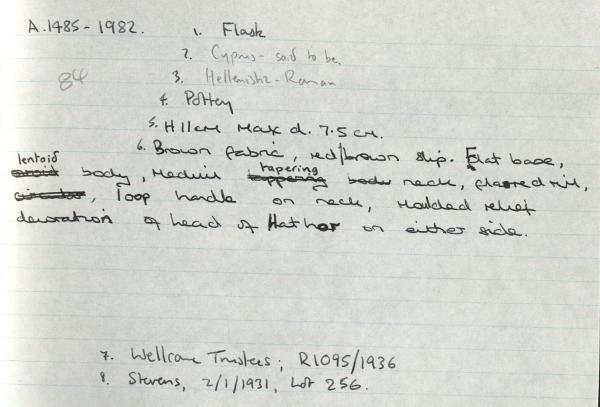 A.1485-1982.
1. Flask
2. Cyprus - said to be.
84
3. Hellenistic-Roman
4. Pottery
5. H 11cm Max d. 7.5 cm.
6. Brown fabric, red/brown slip. Flat base,
lentoid body, medium tapering neck, flared rim,
loop handle on neck, moulded relief
decoration of head of Hathor on either side.
7. Wellcome Trustees; R1095/1936
8. Stevens, 2/1/1931, Lot 256.